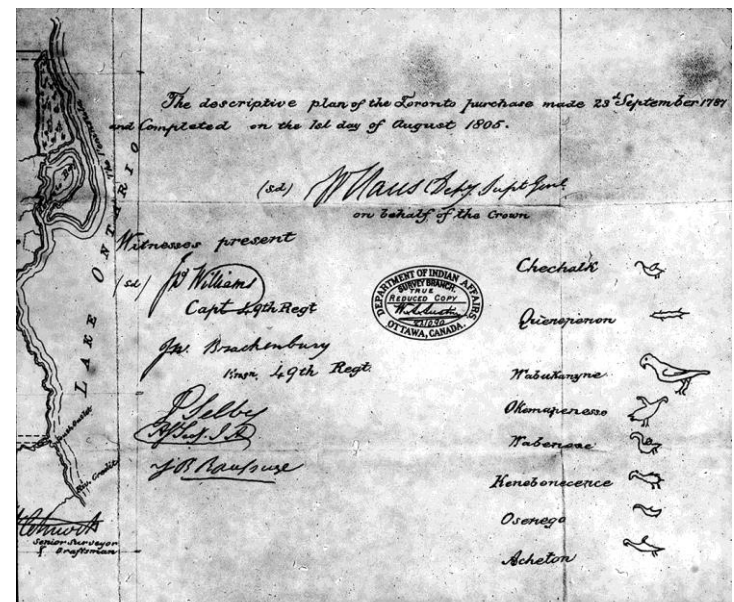 The descriptive plan of the Toronto purchase made 23d September 1787
and Completed on the 1st day of August 1805.
(sd) W Claus Depy Supt Genl
on behalf of the Crown
Witnesses present
(sd) Jno Williams
Capt 49th Regt
Jno. Brackenbury
Ensn. 49th Regt
P Selby
J B Rousseau
DEPARTMENT OF INDIAN AFFAIRS
SURVEY BRANCH.
TRUE
REDUCED COPY
OTTAWA, CANADA.
Chechalk
Quenepenon
Wabukanyne
Okemapenesse
Wabenose
Kenebonecence
Osenego
Acheton
LAKE ONTARIO
Riv. Credit
Senior Surveyor
& Draftsman